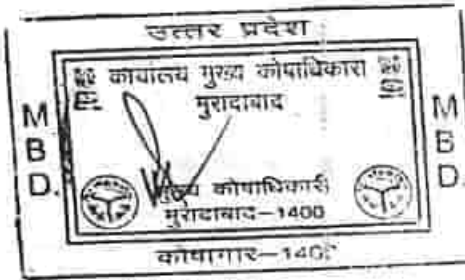 उत्तर प्रदेश
कार्यालय मुख्य कोषाधिकारी
मुरादाबाद
M
B
D.
M
B
D.
मुख्य कोषाधिकारी
मुरादाबाद–1400
कोषागार–1400